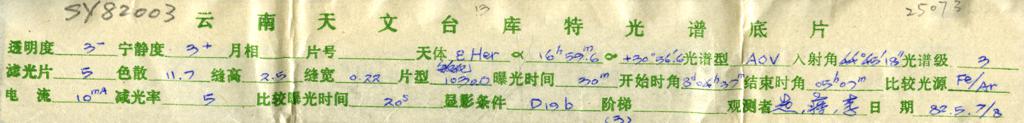 SY82003 云南天文台库特光谱底片 13 25073
透明度 3⁻ 宁静度 3⁺ 月相 片号 天体 ε Her α 16ʰ59ᵐ.6 +30°56'.6 光谱型 A0V 入射角 66°45'18" 光谱级 3
滤光片 5 色散 11.7 缝高 2.5 缝宽 0.22 片型 10300 曝光时间 30ᵐ 开始时角 结束时角 05ʰ07ᵐ 比较光源 Fe/Ar
电流 10ᵐᴬ 减光率 5 比较曝光时间 20ˢ 显影条件 D19b 阶梯 观测者 蒋,李 日期 82.5.7/8
(3)